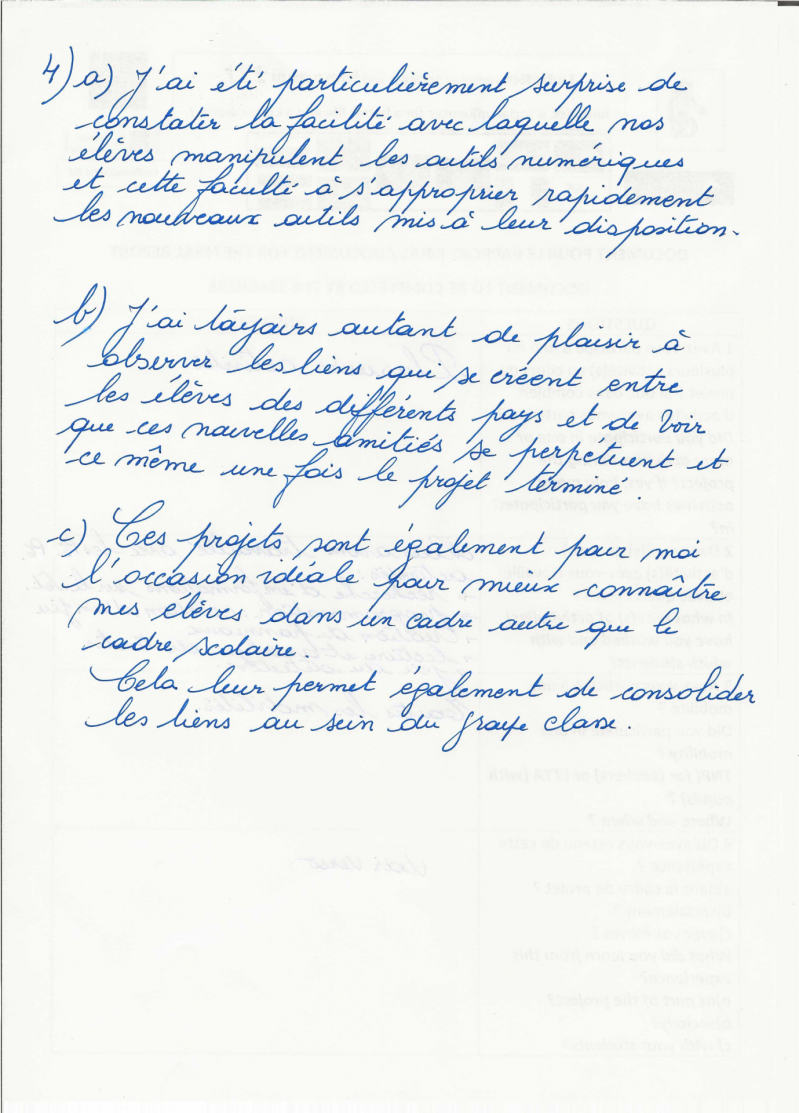 4) a) J'ai été particulièrement surprise de
constater la facilité avec laquelle nos
élèves manipulent les outils numériques
et cette faculté à s'approprier rapidement
les nouveaux outils mis à leur disposition.
b) J'ai toujours autant de plaisir à
observer les liens qui se créent entre
les élèves des différents pays et de voir
que ces nouvelles amitiés se perpetuent et
ce même une fois le projet terminé.
c) Ces projets sont également pour moi
l'occasion idéale pour mieux connaître
mes élèves dans un cadre autre que le
cadre scolaire.
Cela leur permet également de consolider
les liens au sein du groupe classe.